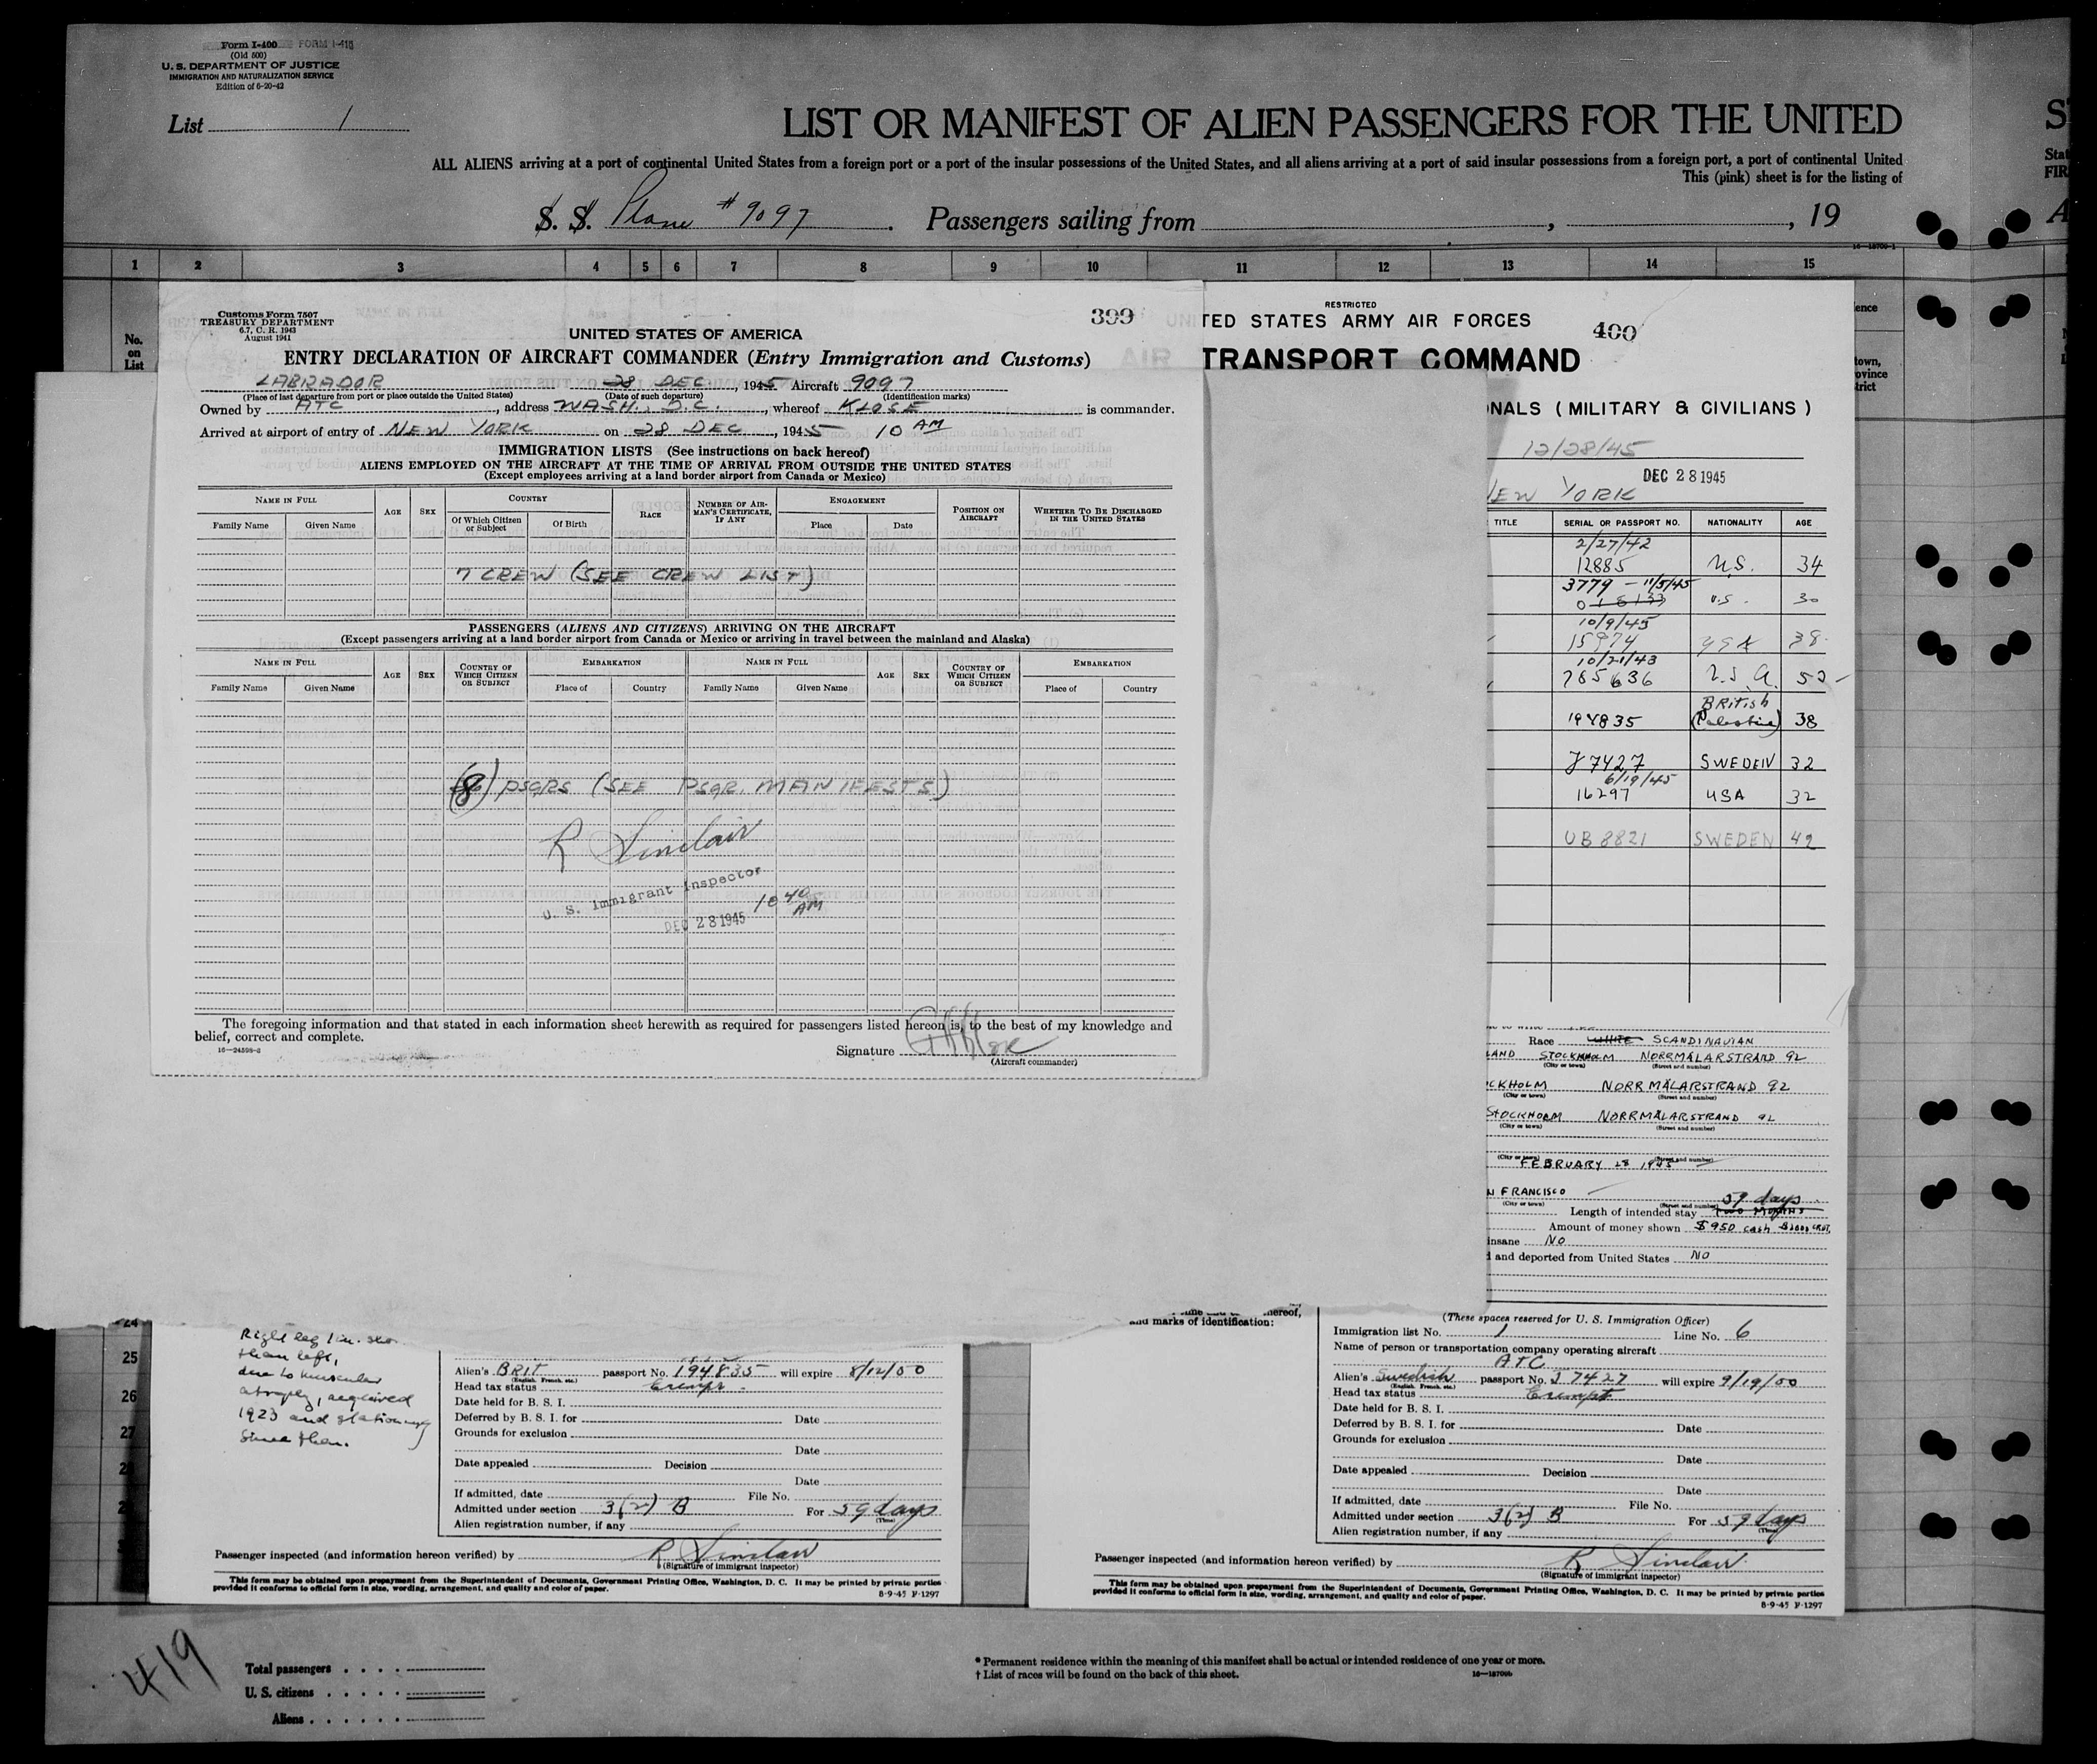 Form I-400 FORM I-415
(Old 500)
U. S. DEPARTMENT OF JUSTICE
IMMIGRATION AND NATURALIZATION SERVICE
Edition of 6-20-42
List 1
LIST OR MANIFEST OF ALIEN PASSENGERS FOR THE UNITED
ALL ALIENS arriving at a port of continental United States from a foreign port or a port of the insular possessions of the United States, and all aliens arriving at a port of said insular possessions from a foreign port, a port of continental United
This (pink) sheet is for the listing of
S. S. Plane # 9097. Passengers sailing from , , 19
1 2 3 4 5 6 7 8 9 10 11 12 13 14 15
No.
on
List
Customs Form 7507
TREASURY DEPARTMENT
6.7, C. R. 1943
August 1941
399
UNITED STATES OF AMERICA
ENTRY DECLARATION OF AIRCRAFT COMMANDER (Entry Immigration and Customs)
LABRADOR 28 DEC, 1945 Aircraft 9097
(Place of last departure from port or place outside the United States) (Date of such departure) (Identification marks)
Owned by ATC, address WASH., D.C., whereof KLOSE is commander.
Arrived at airport of entry of NEW YORK on 28 DEC, 1945 10 AM
IMMIGRATION LISTS (See instructions on back hereof)
ALIENS EMPLOYED ON THE AIRCRAFT AT THE TIME OF ARRIVAL FROM OUTSIDE THE UNITED STATES
(Except employees arriving at a land border airport from Canada or Mexico)
NAME IN FULL AGE SEX COUNTRY RACE NUMBER OF AIRMAN'S CERTIFICATE, IF ANY ENGAGEMENT POSITION ON AIRCRAFT WHETHER TO BE DISCHARGED IN THE UNITED STATES
Family Name Given Name Of Which Citizen or Subject Of Birth Place Date
7 CREW (SEE CREW LIST)
PASSENGERS (ALIENS AND CITIZENS) ARRIVING ON THE AIRCRAFT
(Except passengers arriving at a land border airport from Canada or Mexico or arriving in travel between the mainland and Alaska)
NAME IN FULL AGE SEX COUNTRY OF WHICH CITIZEN OR SUBJECT EMBARKATION NAME IN FULL AGE SEX COUNTRY OF WHICH CITIZEN OR SUBJECT EMBARKATION
Family Name Given Name Place of Country Family Name Given Name Place of Country
(8) PSGRS (SEE PSGR. MANIFESTS)
R Sinclair
U. S. Immigrant Inspector
DEC 28 1945 10 40 AM
The foregoing information and that stated in each information sheet herewith as required for passengers listed hereon is, to the best of my knowledge and
belief, correct and complete.
16-24598-2
Signature
(Aircraft commander)
RESTRICTED
TED STATES ARMY AIR FORCES
400
TRANSPORT COMMAND
ONALS (MILITARY & CIVILIANS)
12/28/45
DEC 28 1945
NEW YORK
TITLE SERIAL OR PASSPORT NO. NATIONALITY AGE
2/27/42
12885 U.S. 34
3779 - 11/5/45
U.S. 30
10/9/45
15974 USA 38
10/21/43
785636 U.S.A. 52
194835 BRITISH (Palestine) 38
J7427 SWEDEN 32
6/19/45
16297 USA 32
UB 8821 SWEDEN 42
Race WHITE SCANDINAVIAN
LAND STOCKHOLM NORRMÄLARSTRAND 92
(City or town) (Street and number)
CKHOLM NORR MÄLARSTRAND 92
(City or town) (Street and number)
STOCKHOLM NORRMÄLARSTRAND 92
(City or town) (Street and number)
(City or town) (Street and number)
FEBRUARY 28 1945
N FRANCISCO
(City or town) (Street and number)
Length of intended stay TWO MONTHS 59 days
Amount of money shown $950 cash
insane NO
d and deported from United States NO
24
25
26
27
Right leg 1 in.
than left,
due to muscular
atrophy, acquired
1923 and stationary
since then.
Alien's BRIT passport No. 194835 will expire 8/12/50
(English, French, etc.)
Head tax status Exempt.
Date held for B. S. I.
Deferred by B. S. I. for Date
Grounds for exclusion
Date
Date appealed Decision
Date
If admitted, date File No.
Admitted under section 3(2) B For 59 days
(Time)
Alien registration number, if any
Passenger inspected (and information hereon verified) by R Sinclair
(Signature of immigrant inspector)
This form may be obtained upon prepayment from the Superintendent of Documents, Government Printing Office, Washington, D. C. It may be printed by private parties
provided it conforms to official form in size, wording, arrangement, and quality and color of paper.
8-9-45 P-1297
hereof,
and marks of identification:
(These spaces reserved for U. S. Immigration Officer)
Immigration list No. 1 Line No. 6
Name of person or transportation company operating aircraft
ATC
Alien's Swedish passport No. J 7427 will expire 9/19/50
(English, French, etc.)
Head tax status Exempt
Date held for B. S. I.
Deferred by B. S. I. for Date
Grounds for exclusion
Date
Date appealed Decision
Date
If admitted, date File No.
Admitted under section 3(2) B For 59 days
(Time)
Alien registration number, if any
Passenger inspected (and information hereon verified) by R Sinclair
(Signature of immigrant inspector)
This form may be obtained upon prepayment from the Superintendent of Documents, Government Printing Office, Washington, D. C. It may be printed by private parties
provided it conforms to official form in size, wording, arrangement, and quality and color of paper.
8-9-45 P-1297
419
Total passengers
U. S. citizens
Aliens
* Permanent residence within the meaning of this manifest shall be actual or intended residence of one year or more.
† List of races will be found on the back of this sheet.